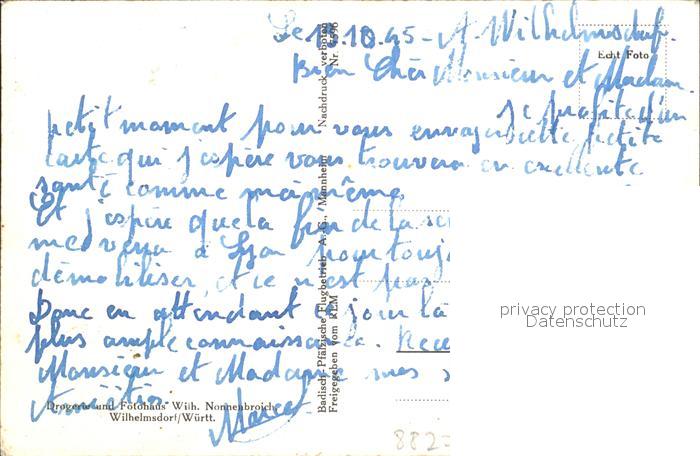 Le 15.10.45 - A Wilhelmsdorf.
Bien Chèr Monsieur et Madam.
je profite d'un
petit mamant pour vous envoyer cette petite
carte qui j'espère vous trouvera en excellente
santé comme moi même
Et j'espère que la fin de la
me verra à Lyon pour touj
démobiliser, et ce n'est pas
Donc en attendant le jour là
plus ample connaissance. Rece
Monsieur et Madame mes
Amitiés
Marcel
Echt Foto
Nachdruck verboten
Badisch-Pfälzische Flugbetrieb A. G., Mannheim
Freigegeben vom RLM
Drogerie und Fotohaus Wilh. Nonnenbroich,
Wilhelmsdorf/Württ.
privacy protection
Datenschutz